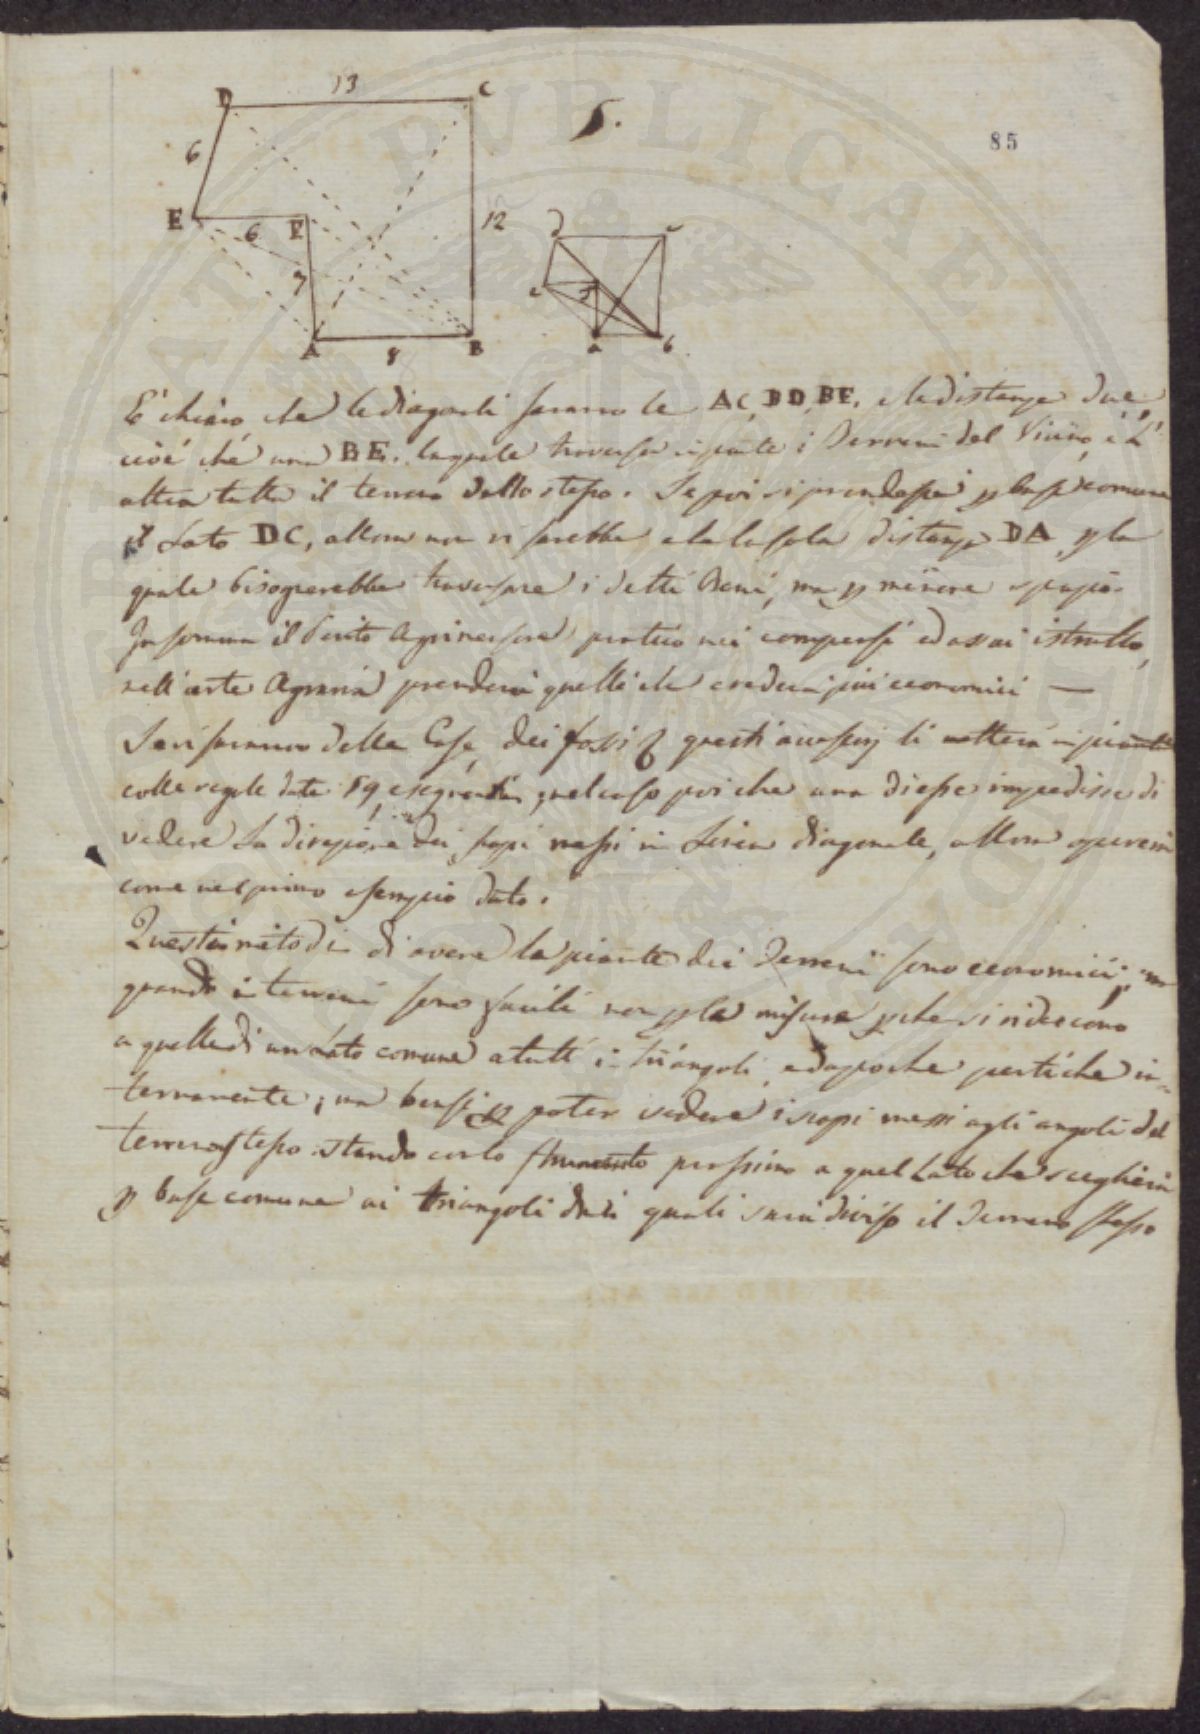 5.
85
D 13 C
6
E 6 F 12
7
A 8 B
d c
e f
a b
E' chiaro che le diagonali saranno le AC, BD, BE. e le distanze due,
cioè che una BE. la quale traversa in parte i Terreni del Vicino, e l'
altra tutta il terreno dello stesso. Se poi si prendesse p base comune
il Lato DC, allora non vi sarebbe che la sola distanza DA p la
quale bisognerebbe traversare i detti Beni, ma p minore spazio.
In somma il Perito Agrimensore pratico nei compensi ed assai istrutto,
nell'arte Agraria prenderà quelli che crederà più economici —
Se vi saranno delle Case, dei fossi questi li metterà in pianta
colle regole date nel caso poi che una di esse impedisse di
vedere la direzione dei scopi messi in Linea diagonale, allora opererai
come nel primo esempio dato.
Questi metodi di avere la pianta dei Terreni sono economici; ma
quando i terreni sono facili non p la misura p che si riducono
a quelle di un Lato comune a tutti i triangoli, ed a poche pertiche in=
ternamente; ma bensì p poter vedere i scopi messi agli angoli del
terreno stesso stando con lo strumento prossimo a quel Lato che sceglierai
p base comune ai triangoli dai quali sarà diviso il Terreno stesso